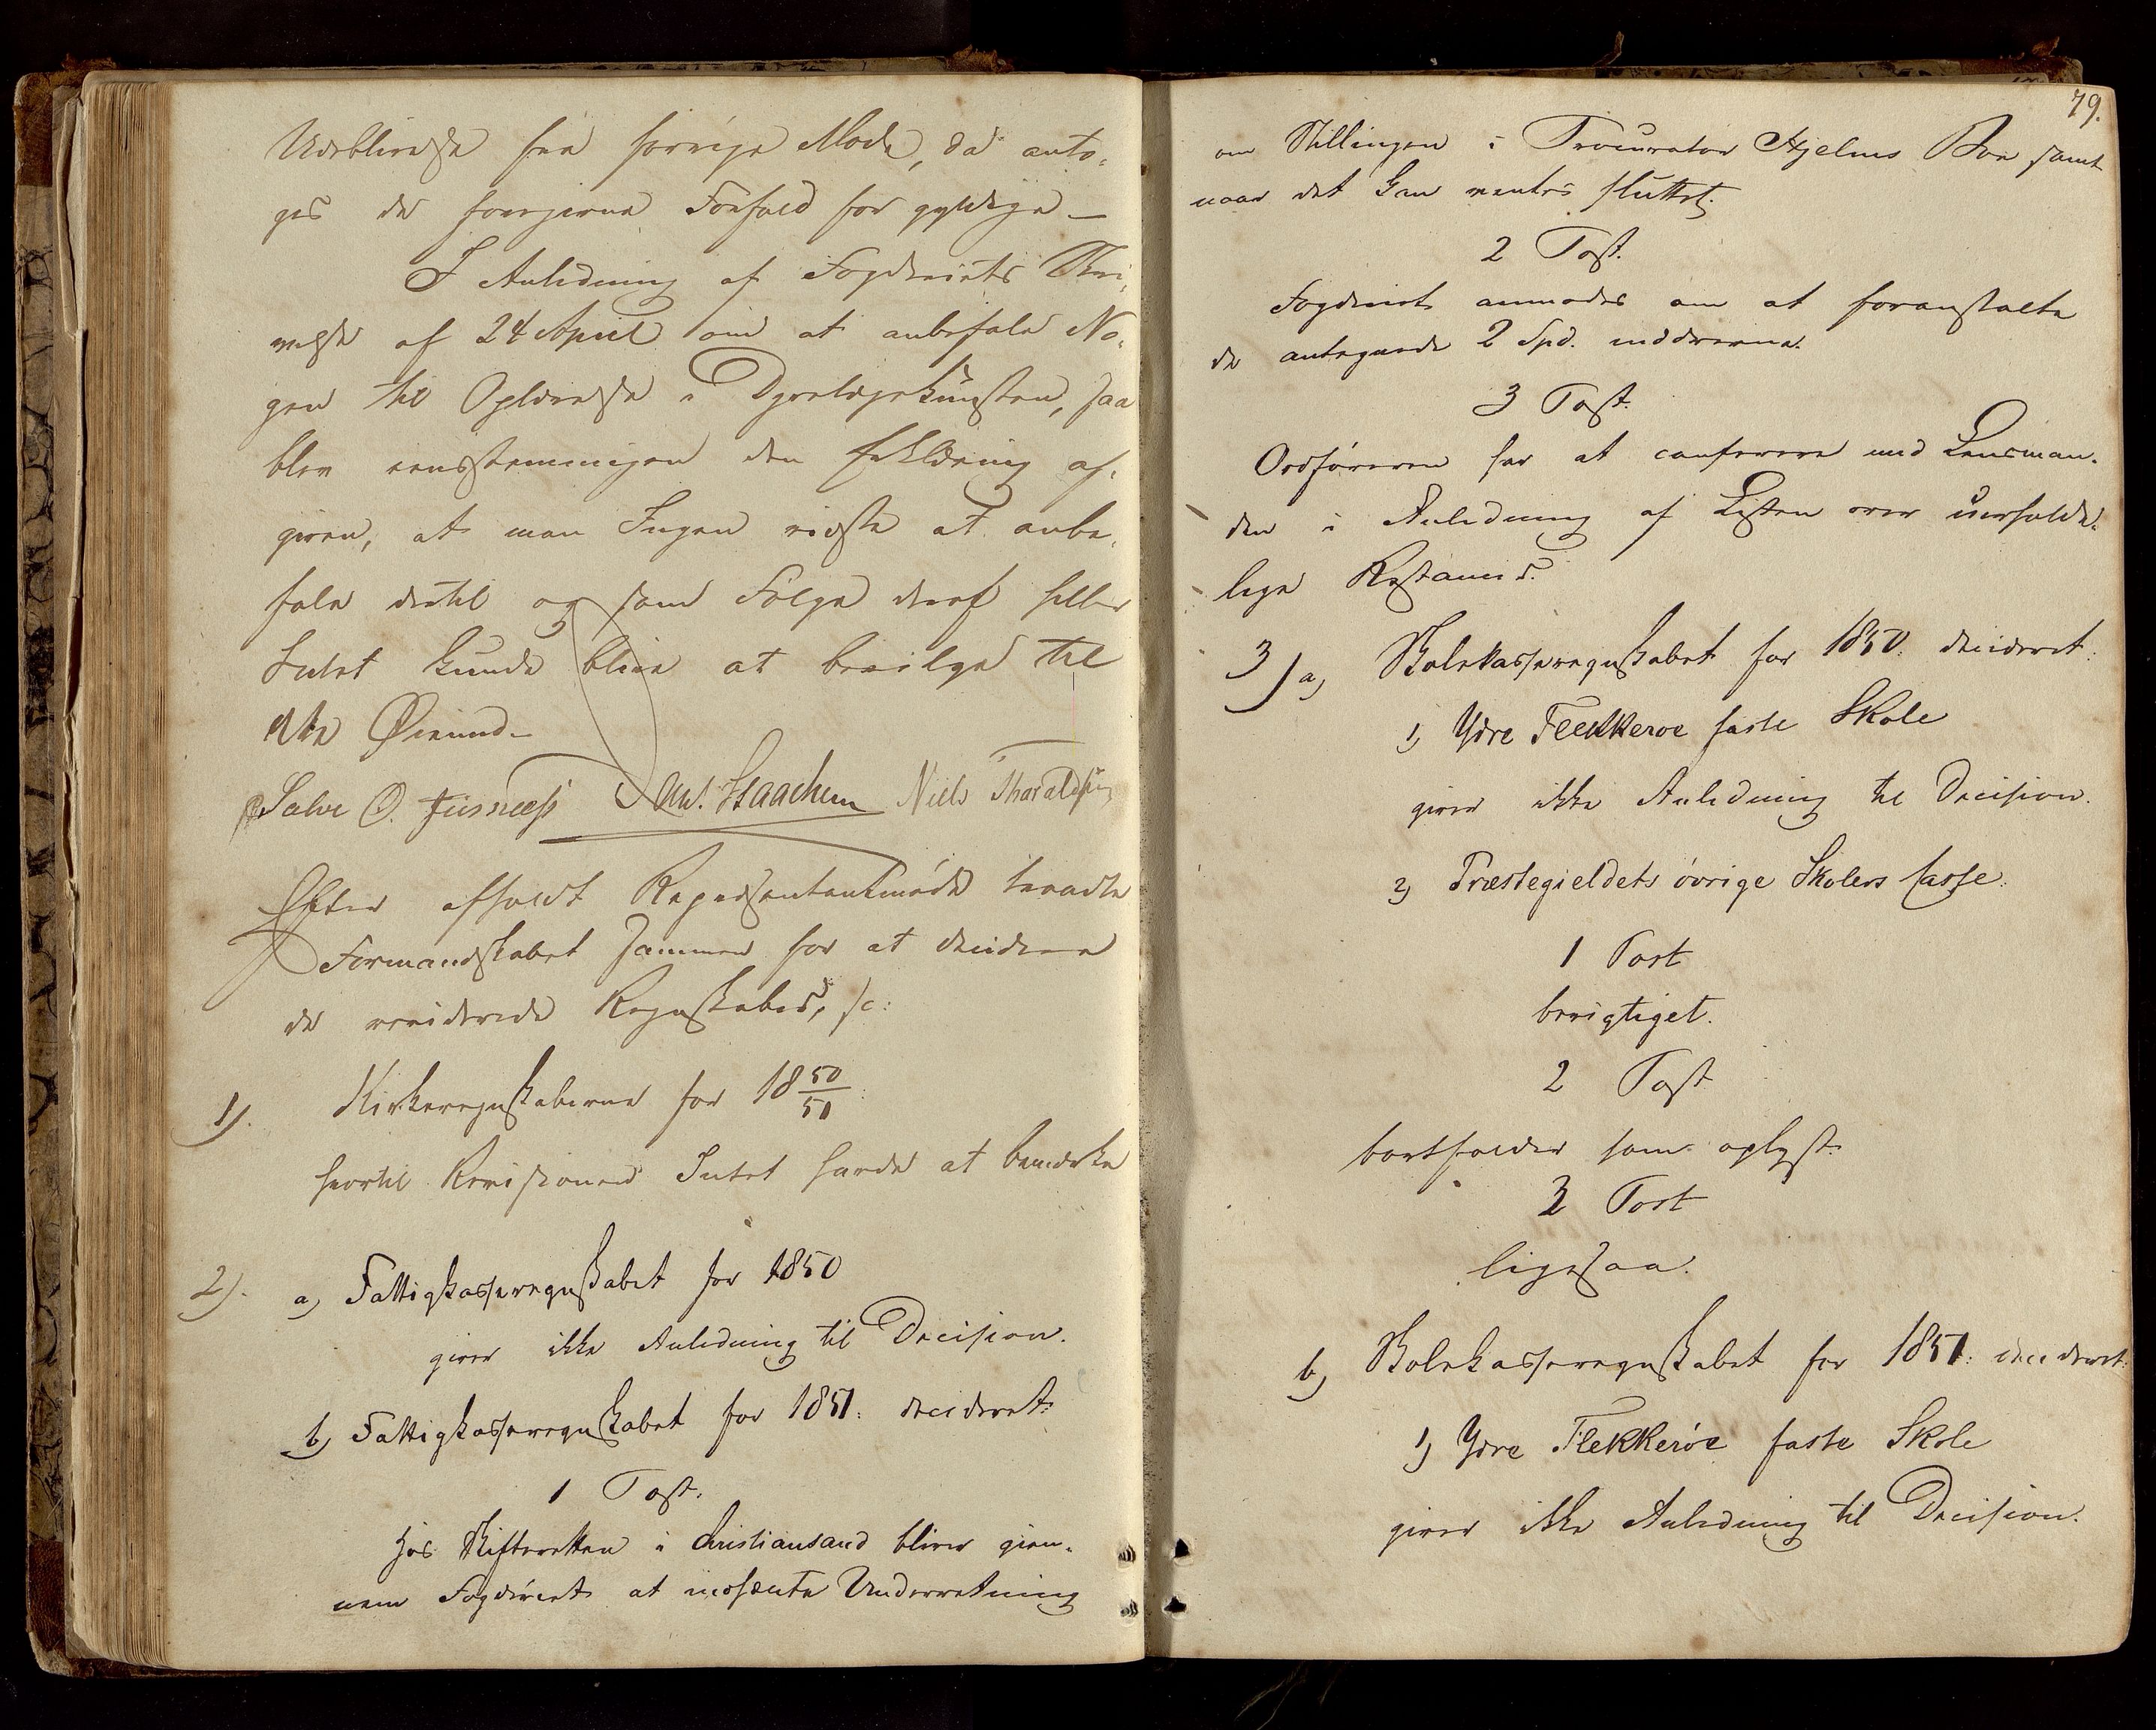 Udeblivelse fra forrige Møde, da anto-
ges de foregivne Forfald for gyldige –
I Anledning af Fogderiets Skri-
velse af 24 April om at anbefale No-
gen til Oplærelse i Dyrelægekunsten, saa
blev eensstemmigen den Erklæring af-
given, at man Ingen vidste at anbe-
fale dertil og som Følge deraf heller
Intet kunde blive at bevilge til
dette Øiemed –
Salve O. Fiisnæss Ant. Haachem Niels Thoraldsen
Efter afholdt Repræsentantmøde traadte
Formandskabet sammen for at decidere
de reviderede Regnskaber, sc:
1). Kirkeregnskaberne for 18 50/51:
hvortil Revisionen Intet havde at bemærke
2). a) Fattigkasseregnskabet for 1850
giver ikke Anledning til Decision.
b) Fattigkasseregnskabet for 1851: decideret:
1 Post.
Hos Skifteretten i Christiansand bliver gien-
nem Fogderiet at indhente Underretning
79.
om Stillingen i Procurator Hjelms Boe samt
naar det kan ventes sluttet.
2 Post.
Fogderiet anmodes om at foranstalte
de antegnede 2 Spd. inddrevne.
3 Post.
Ordføreren har at conferere med Lensman-
den i Anledning af Listen over uerholde-
lige Restancer.
3) a) Skolekasseregnskabet for 1850: decideret:
1) Ydre Flekkerøe faste Skole
giver ikke Anledning til Decision.
2) Præstegieldets øvrige Skolers Casse.
1 Post
berigtiget.
2 Post
bortfalder som oplyst.
3 Post
ligesaa.
b) Skolekasseregnskabet for 1851: decideret:
1) Ydre Flekkerøe faste Skole
giver ikke Anledning til Decision.